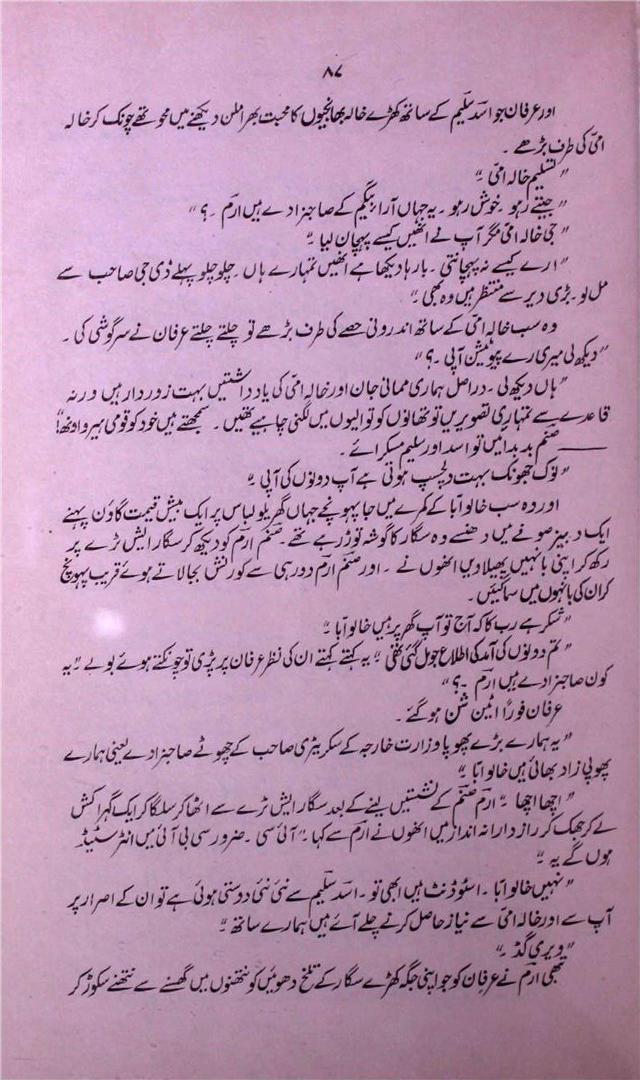 ۸۷
اور عرفان جو اسد سلیم کے ساتھ کھڑے خالہ بھانجیوں کا محبت بھرا ملن دیکھنے میں محو تھے چونک کر خالہ
امّی کی طرف بڑھے ۔
” تسلیم خالہ امّی ۔“
” جیتے رہو ۔ خوش رہو ۔ یہ جہاں آرا بیگم کے صاحبزادے ہیں ارم ۔ ؟“
” جی خالہ امّی مگر آپ نے انھیں کیسے پہچان لیا ۔“
” ارے کیسے نہ پہچانتی ۔ بارہا دیکھا ہے انھیں تمہارے ہاں ۔ چلو چلو پہلے ڈی جی صاحب سے
مل لو ۔ بڑی دیر سے منتظر ہیں وہ بھی ۔“
وہ سب خالہ امّی کے ساتھ اندرونی حصے کی طرف بڑھے تو چلتے چلتے عرفان نے سرگوشی کی ۔
” دیکھ لی میری رے پیوٹیشن آپی ۔ ؟“
” ہاں دیکھ لی ۔ دراصل ہماری ممانی جان اور خالہ امّی کی یادداشتیں بہت زوردار ہیں ورنہ
قاعدے سے تمہاری تصویریں تو تھانوں کوتوالیوں میں لگنی چاہیے تھیں ۔ سمجھتے ہیں خود کو قومی ہیرو اونھ!“
—— صنم بدبدائیں تو اسد اور سلیم مسکرائے ۔
” نوک جھونک بہت دلچسپ ہوتی ہے آپ دونوں کی آپی ۔“
اور وہ سب خالو ابّا کے کمرے میں جا پہونچے جہاں گھریلو لباس پر ایک بیش قیمت گاؤن پہنے
ایک دبیز صوفے میں دھنسے وہ سگار کا گوشہ توڑ رہے تھے ۔ صنم ارم کو دیکھ کر سگار ایش ٹرے پر
رکھ کر اپنی بانہیں پھیلا دیں انھوں نے ۔ اور صنم ارم دور ہی سے کورنش بجا لاتے ہوئے قریب پہونچ
کر ان کی بانہوں میں سما گئیں ۔
” شکر ہے رب کا کہ آج تو آپ گھر پر ہیں خالو ابّا ۔“
” تم دونوں کی آمد کی اطلاع جو مل گئی تھی ۔“ یہ کہتے کہتے ان کی نظر عرفان پر پڑی تو چونکتے ہوئے بولے ۔” یہ
کون صاحبزادے ہیں ارم ۔ ؟“
عرفان فوراً اٹین شن ہو گئے ۔
” یہ ہمارے بڑے پھوپا وزارت خارجہ کے سکریٹری صاحب کے چھوٹے صاحبزادے یعنی ہمارے
پھوپی زاد بھائی ہیں خالو ابّا ۔“
” اچھا اچھا ۔“ ارم صنم کے نشستیں لینے کے بعد سگار ایش ٹرے سے اٹھا کر سلگا کر ایک گہرا کش
لے کر جھک کر رازدارانہ انداز میں انھوں نے ارم سے کہا ۔” آئی سی ۔ ضرور سی بی آئی میں انٹرسٹیڈ
ہوں گے یہ ۔“
” نہیں خالو ابّا ۔ اسٹوڈنٹ ہیں ابھی تو ۔ اسد سلیم سے نئی نئی دوستی ہوئی ہے تو ان کے اصرار پر
آپ سے اور خالہ امّی سے نیاز حاصل کرنے چلے آئے ہیں ہمارے ساتھ ۔“
” ویری گڈ ۔“
تبھی ارم نے عرفان کو جو اپنی جگہ کھڑے سگار کے تلخ دھوئیں کو نتھنوں میں گھسنے سے نتھنے سکوڑ کر